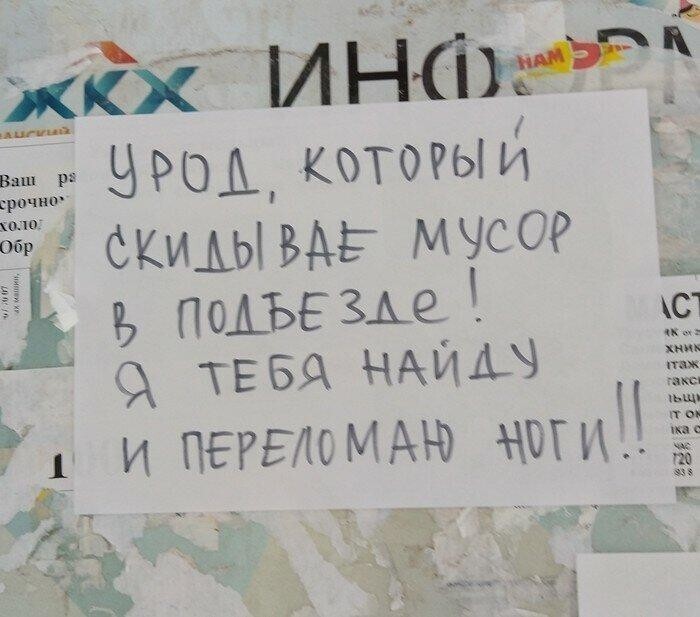 ЖКХ ИНФОРМ
НАМ
Ваш ра
срочно
холо
Обр
УРОД, КОТОРЫЙ
СКИДЫВАЕ МУСОР
В ПОДЪЕЗДЕ!
Я ТЕБЯ НАЙДУ
И ПЕРЕЛОМАЮ НОГИ!!
АСТ
хник
нтаж
такс
час
720
93 8